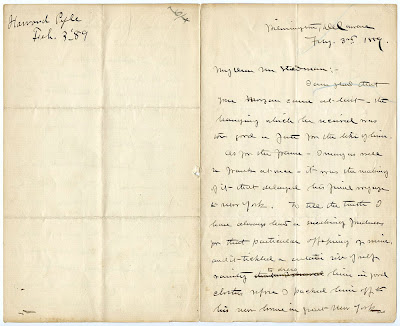 Howard Pyle
Feb. 3rd '89
Wilmington, Delaware
Feby. 3rd 1889.
My dear Mr Stedman:-
I am glad that
your Morgan came at last - the
hanging which he received was
too good a fate for the like of him.
As for the frame - I may as well
be frank at once - it was the making
of it that delayed his final voyage
to New York. To tell the truth I
have always had a sneaking fondness
for that particular offspring of mine,
and it tickled a certain sire of
vanity to dress him in good
clothes before I packed him off to
his new home in great New York.